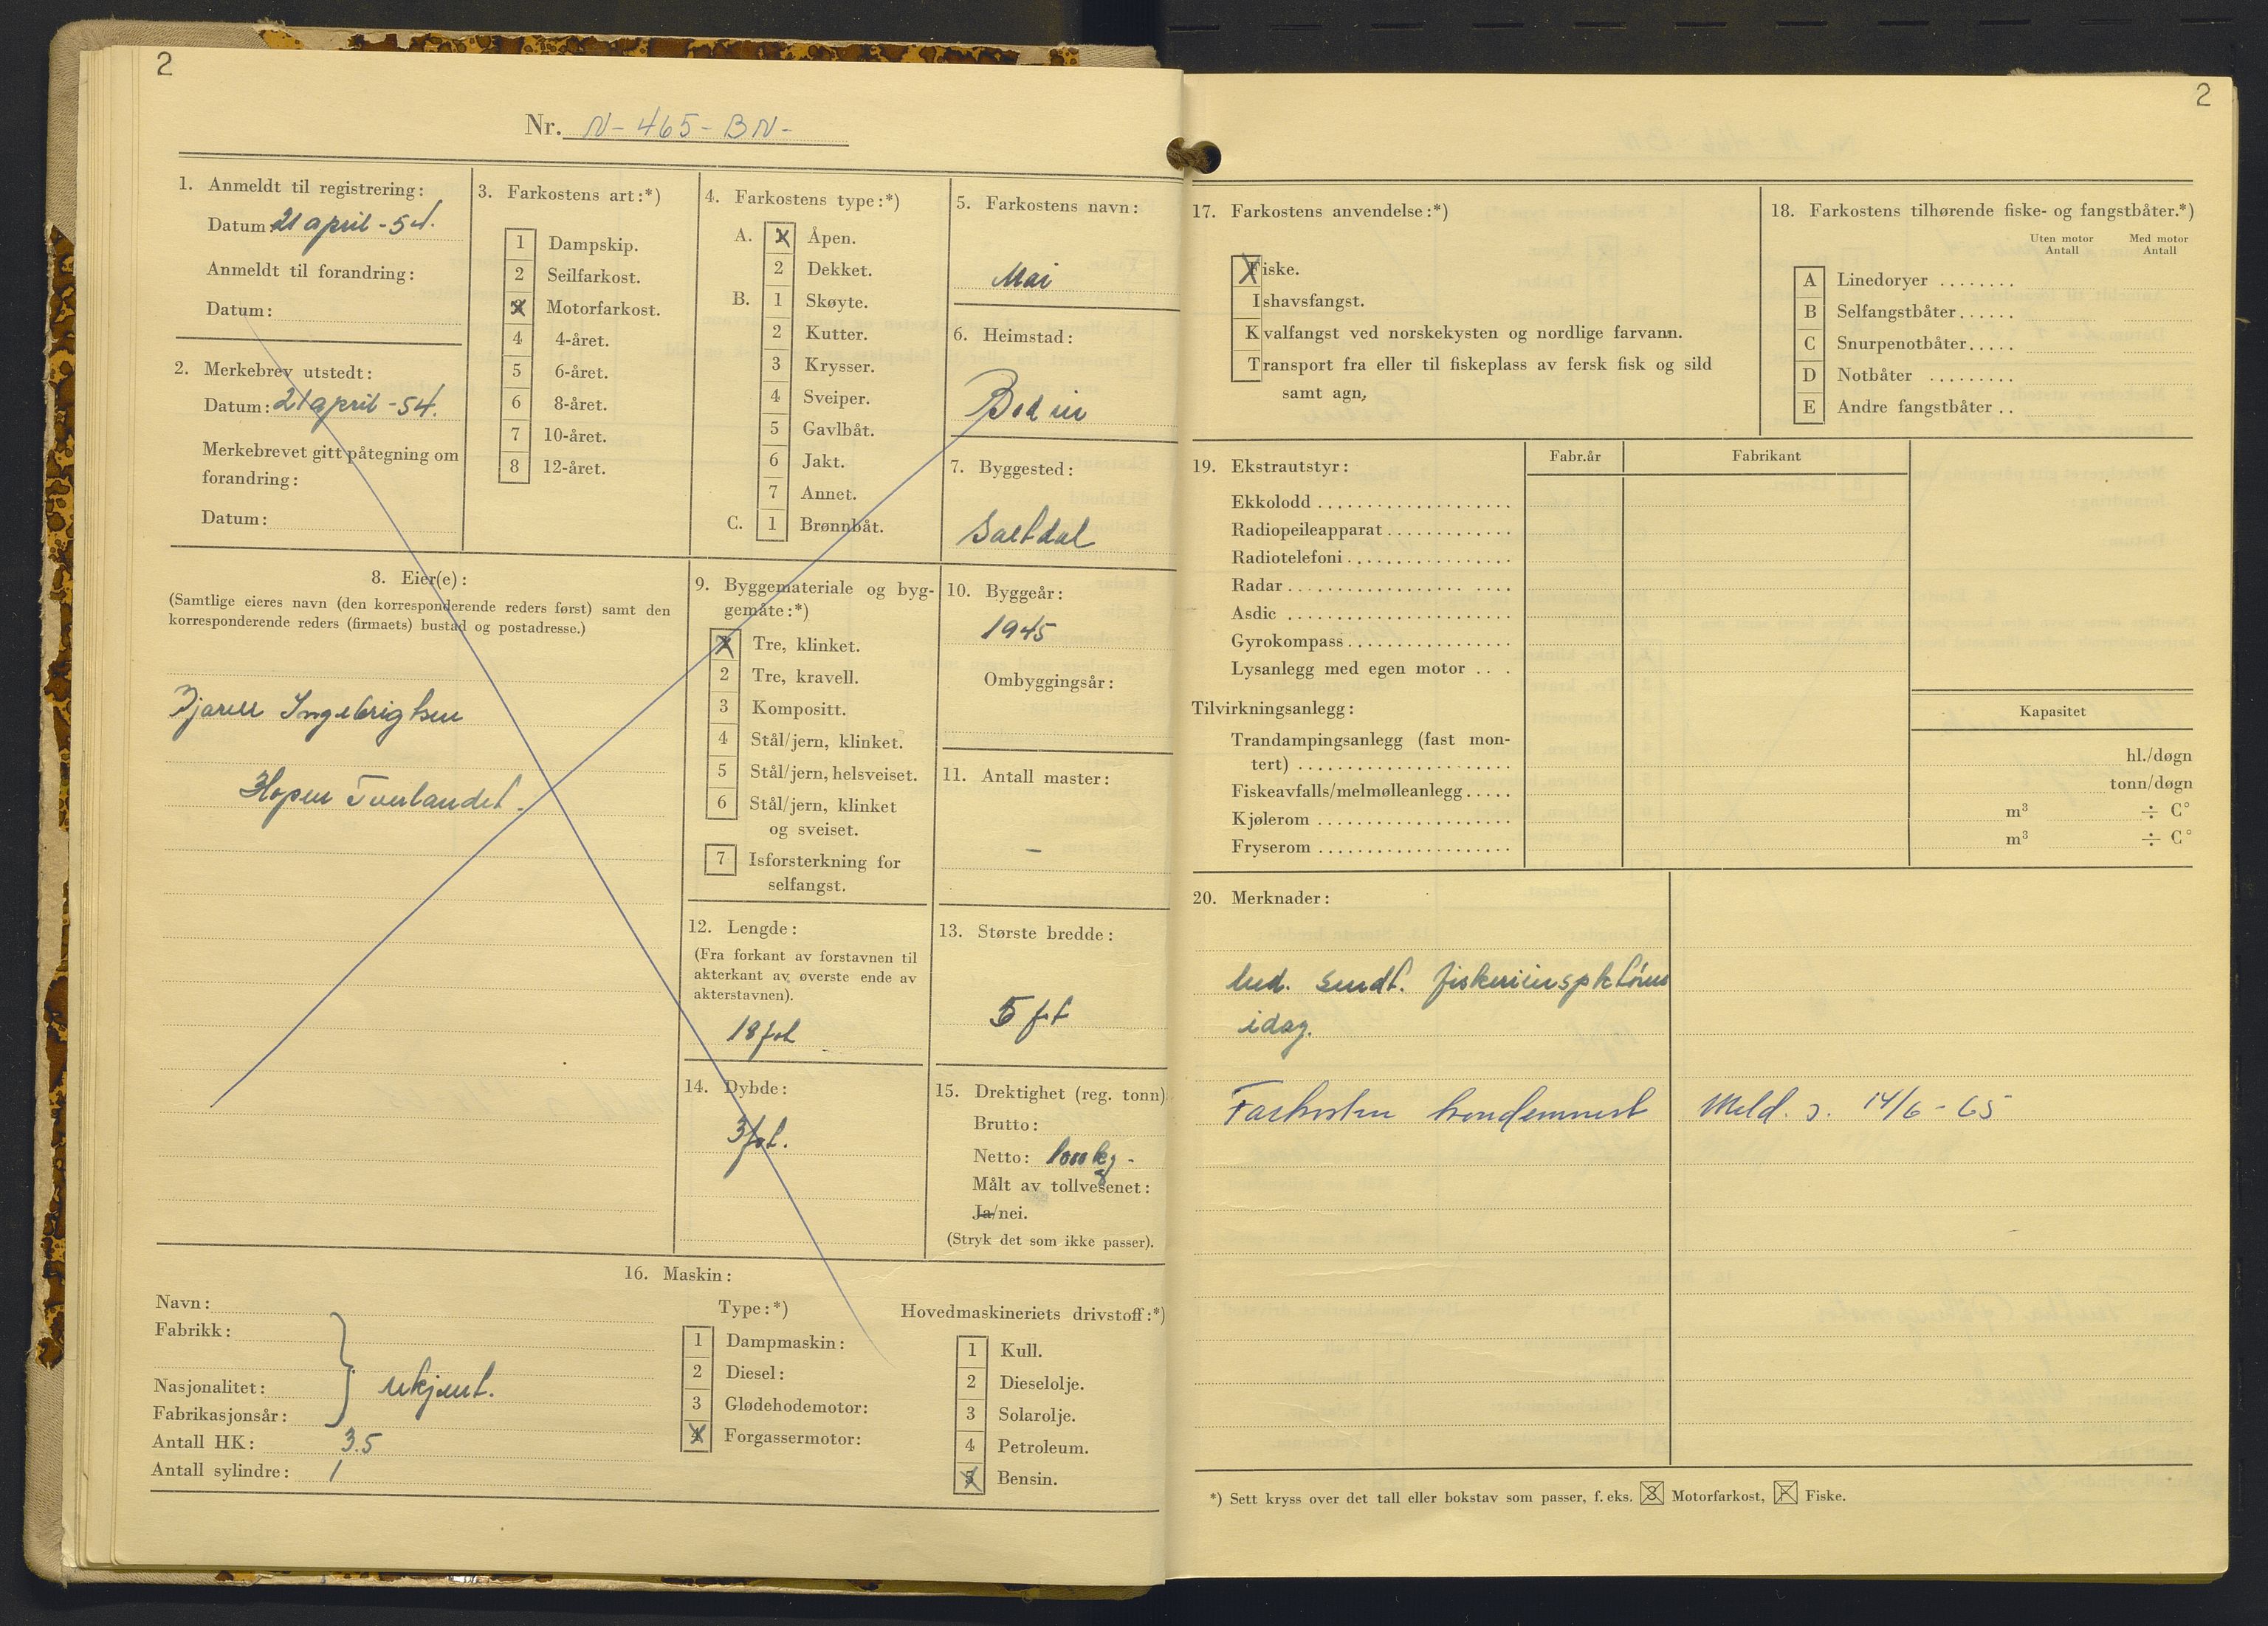 2
Nr. N-465-BN-
1. Anmeldt til registrering:
Datum: 21 april -54.
Anmeldt til forandring:
Datum:
2. Merkebrev utstedt:
Datum: 21 april -54.
Merkebrevet gitt påtegning om
forandring:
Datum:
3. Farkostens art:*)
1 Dampskip.
2 Seilfarkost.
3 Motorfarkost.
4 4-året.
5 6-året.
6 8-året.
7 10-året.
8 12-året.
4. Farkostens type:*)
A. 1 Åpen.
2 Dekket.
B. 1 Skøyte.
2 Kutter.
3 Krysser.
4 Sveiper.
5 Gavlbåt.
6 Jakt.
7 Annet.
C. 1 Brønnbåt.
5. Farkostens navn:
Mai
6. Heimstad:
Bodin
7. Byggested:
Saltdal
8. Eier(e):
(Samtlige eieres navn (den korresponderende reders først) samt den
korresponderende reders (firmaets) bustad og postadresse.)
Bjarne Ingebrigtsen
Hopen Tverlandet.
9. Byggemateriale og byg-
gemåte:*)
1 Tre, klinket.
2 Tre, kravell.
3 Kompositt.
4 Stål/jern, klinket.
5 Stål/jern, helsveiset.
6 Stål/jern, klinket
og sveiset.
7 Isforsterkning for
selfangst.
10. Byggeår:
1945
Ombyggingsår:
11. Antall master:
-
12. Lengde:
(Fra forkant av forstavnen til
akterkant av øverste ende av
akterstavnen).
18 fot
13. Største bredde:
5 fot
14. Dybde:
3 fot.
15. Drektighet (reg. tonn)
Brutto:
Netto: 1000 kg -
Målt av tollvesenet:
Ja/nei.
(Stryk det som ikke passer).
16. Maskin:
Navn:
Fabrikk:
Nasjonalitet:
Fabrikasjonsår:
ukjent.
Antall HK: 3.5
Antall sylindre: 1
Type:*)
1 Dampmaskin:
2 Diesel:
3 Glødehodemotor:
4 Forgassermotor:
Hovedmaskineriets drivstoff:*)
1 Kull.
2 Dieselolje.
3 Solarolje.
4 Petroleum.
5 Bensin.
2
17. Farkostens anvendelse:*)
Fiske.
Ishavsfangst.
Kvalfangst ved norskekysten og nordlige farvann.
Transport fra eller til fiskeplass av fersk fisk og sild
samt agn,
18. Farkostens tilhørende fiske- og fangstbåter.*)
Uten motor Med motor
Antall Antall
A Linedoryer ........
B Selfangstbåter......
C Snurpenotbåter.....
D Notbåter .........
E Andre fangstbåter ..
19. Ekstrautstyr:
Fabr.år Fabrikant
Ekkolodd
Radiopeileapparat
Radiotelefoni
Radar
Asdic
Gyrokompass
Lysanlegg med egen motor
Tilvirkningsanlegg:
Kapasitet
Trandampingsanlegg (fast mon-
tert) hl./døgn
Fiskeavfalls/melmølleanlegg tonn/døgn
Kjølerom m³ ÷ C°
Fryserom m³ ÷ C°
20. Merknader:
Med. sendt. fiskeriinspktören
idag.
Farkosten kondemnert Meld. d. 14/6 - 65
*) Sett kryss over det tall eller bokstav som passer, f. eks. 3 Motorfarkost, F Fiske.